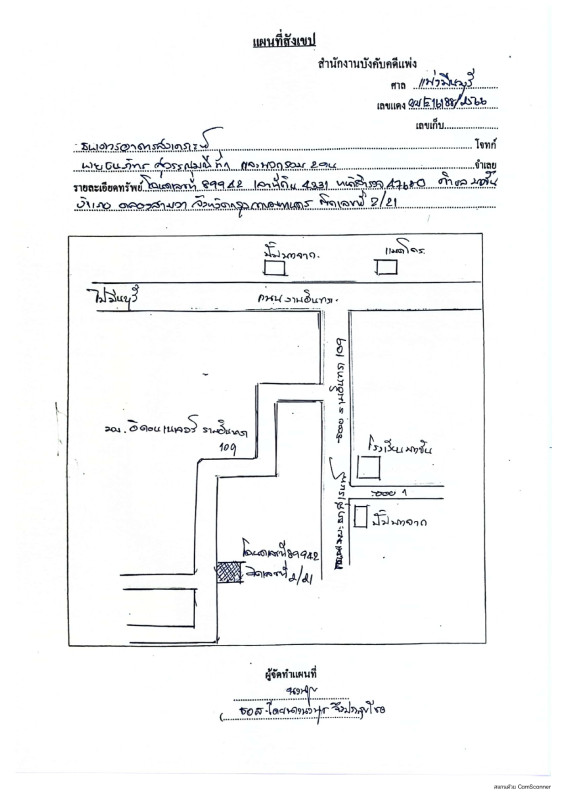 แผนที่สังเขป
สำนักงานบังคับคดีแพ่ง
ศาล แพ่งมีนบุรี
เลขแดง /2566
เลขเก็บ
ธนาคารอาคารสงเคราะห์ โจทก์
นาย และพวกรวม 2 คน จำเลย
รายละเอียดทรัพย์ โฉนดเลขที่ 89942 เลขที่ดิน 4331 หน้าสำรวจ ตำบล บางชัน
อำเภอ คลองสามวา จังหวัดกรุงเทพมหานคร ติดเลขที่ 2/21
ปั๊มบางจาก
แมคโคร
ไปมีนบุรี
ถนน รามอินทรา
ซอย รามอินทรา 109
รามอินทรา
109
โรงเรียนบางชัน
ซอย 1
ปั๊มบางจาก
โฉนดเลขที่ 89942
ติดเลขที่ 2/21
ผู้จัดทำแผนที่
ธอส. โดย
สแกนด้วย CamScanner